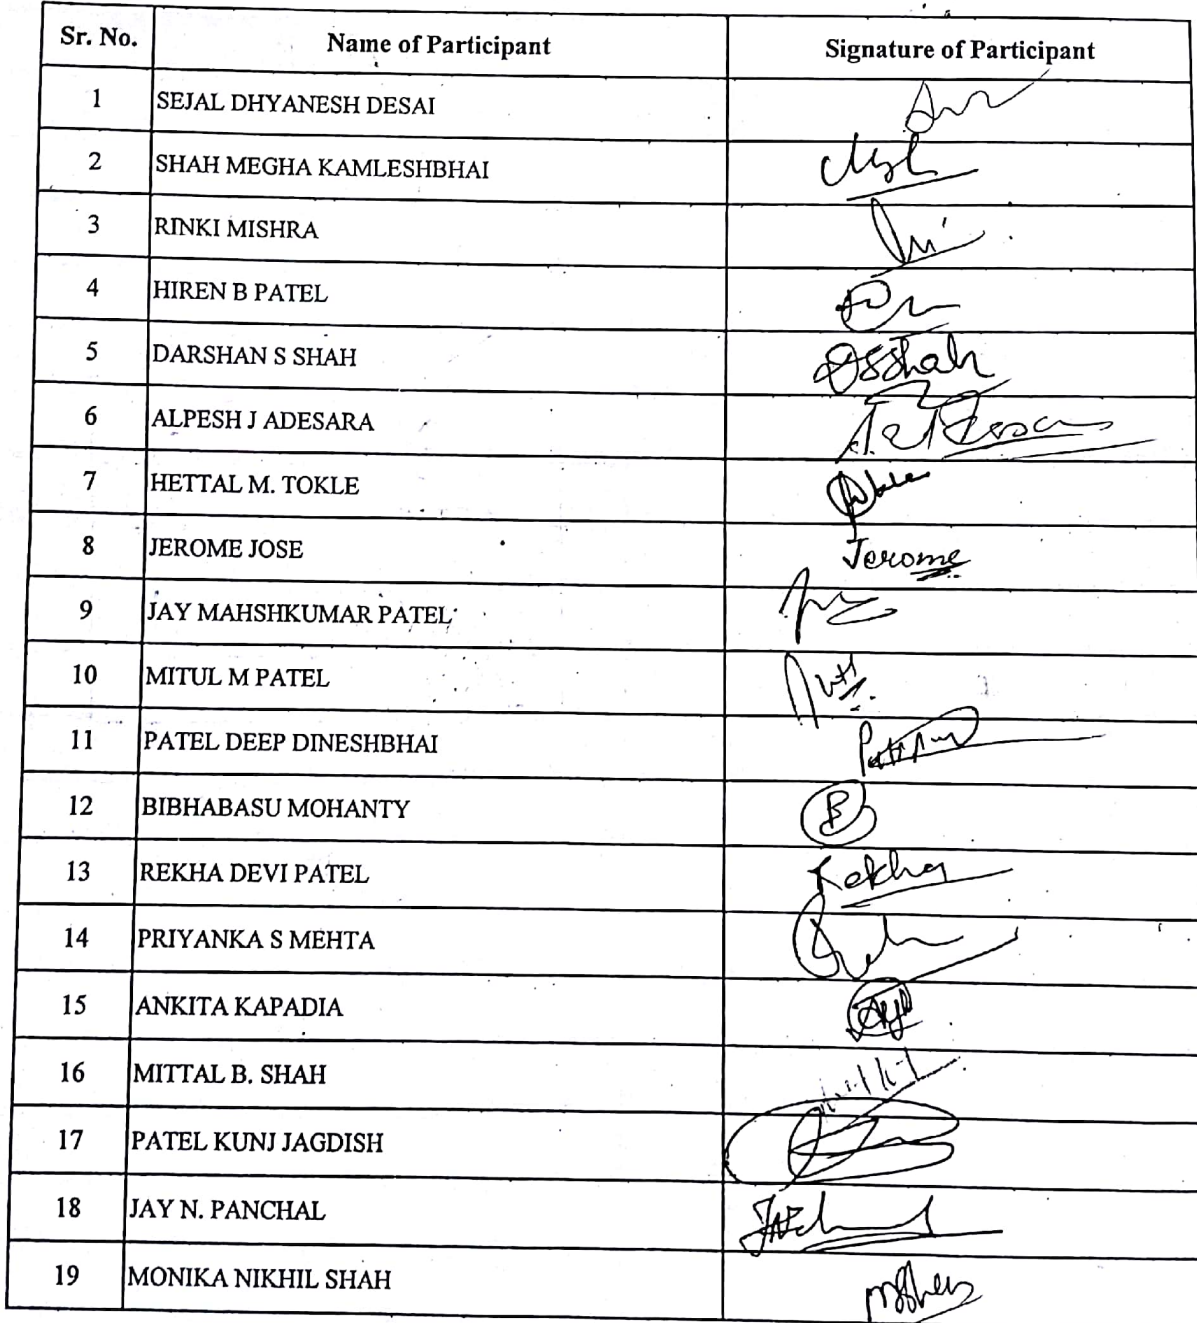 Sr. No. Name of Participant Signature of Participant
1 SEJAL DHYANESH DESAI
2 SHAH MEGHA KAMLESHBHAI
3 RINKI MISHRA
4 HIREN B PATEL
5 DARSHAN S SHAH DSShah
6 ALPESH J ADESARA
7 HETTAL M. TOKLE
8 JEROME JOSE Jerome
9 JAY MAHSHKUMAR PATEL
10 MITUL M PATEL
11 PATEL DEEP DINESHBHAI
12 BIBHABASU MOHANTY B
13 REKHA DEVI PATEL Rekha
14 PRIYANKA S MEHTA
15 ANKITA KAPADIA
16 MITTAL B. SHAH
17 PATEL KUNJ JAGDISH
18 JAY N. PANCHAL
19 MONIKA NIKHIL SHAH